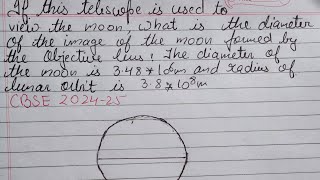 If this teliscope is used to
view the moon, what is the diameter
of the image of the moon formed by
the objective lens? The diameter of
the moon is 3.48 * 10⁶m and radius of
lunar orbit is 3.8 * 10⁸m
CBSE 2024-25